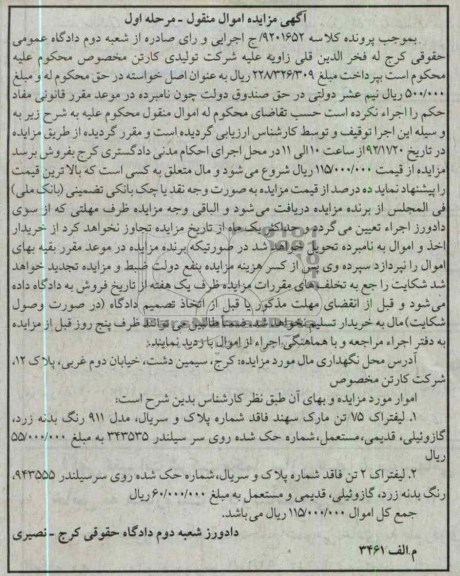 آگهی مزایده اموال منقول - مرحله اول
بموجب پرونده کلاسه ۹۲۰۱۶۵۲/ج اجرایی و رای صادره از شعبه دوم دادگاه عمومی
حقوقی کرج له فخر الدین قلی زاویه علیه شرکت تولیدی کارتن مخصوص محکوم علیه
محکوم است بپرداخت مبلغ ۲۲۸/۳۲۶/۳۰۹ ریال به عنوان اصل خواسته در حق محکوم له و مبلغ
۵۰۰/۰۰۰ ریال نیم عشر دولتی در حق صندوق دولت چون نامبرده در موعد مقرر قانونی مفاد
حکم را اجراء نکرده است حسب تقاضای محکوم له اموال منقول محکوم علیه به شرح زیر به
و سیله این اجرا توقیف و توسط کارشناس ارزیابی گردیده است و مقرر گردیده از طریق مزایده
در تاریخ ۹۲/۱۱/۲۰ از ساعت ۱۰ الی ۱۱ در محل اجرای احکام مدنی دادگستری کرج بفروش برسد
مزایده از قیمت ۱۱۵/۰۰۰/۰۰۰ ریال شروع می شود و مال متعلق به کسی است که بالا ترین قیمت
را پیشنهاد نماید ده درصد از قیمت مزایده به صورت وجه نقد یا چک بانکی تضمینی (بانک ملی)
فی المجلس از برنده مزایده دریافت می شود و الباقی وجه مزایده ظرف مهلتی که از سوی
دادورز اجراء تعیین می گردد و حداکثر یک ماه از تاریخ مزایده تجاوز نخواهد کرد از خریدار
اخذ و اموال به نامبرده تحویل خواهد شد در صورتیکه برنده مزایده در موعد مقرر بقیه بهای
اموال را نپردازد سپرده وی پس از کسر هزینه مزایده بنفع دولت ضبط و مزایده تجدید خواهد
شد شکایت را جع به تخلف های مقررات مزایده ظرف یک هفته از تاریخ فروش به دادگاه داده
می شود و قبل از انقضای مهلت مذکور یا قبل از اتخاذ تصمیم دادگاه (در صورت وصول
شکایت) مال به خریدار تسلیم نخواهد شد ضمنا طالبین می توانند ظرف پنج روز قبل از مزایده
به دفتر اجراء مراجعه و با هماهنگی اجراء از اموال با زدید نمایند.
آدرس محل نگهداری مال مورد مزایده: کرج، سیمین دشت، خیابان دوم غربی، پلاک ۱۲،
شرکت کارتن مخصوص
اموار مورد مزایده و بهای آن طبق نظر کارشناس بدین شرح است:
۱. لیفتراک ۷/۵ تن مارک سهند فاقد شماره پلاک و سریال، مدل ۹۱۱ رنگ بدنه زرد،
گازوئیلی، قدیمی، مستعمل، شماره حک شده روی سر سیلندر ۳۴۳۵۳۵ به مبلغ ۵۵/۰۰۰/۰۰۰
ریال
۲. لیفتراک ۲ تن فاقد شماره پلاک و سریال، شماره حک شده روی سرسیلندر ۹۴۳۵۵۵،
رنگ بدنه زرد، گازوئیلی، قدیمی و مستعمل به مبلغ ۶۰/۰۰۰/۰۰۰ ریال
جمع کل اموال ۱۱۵/۰۰۰/۰۰۰ ریال می باشد.
دادورز شعبه دوم دادگاه حقوقی کرج - نصیری
م.الف ۳۴۶۱